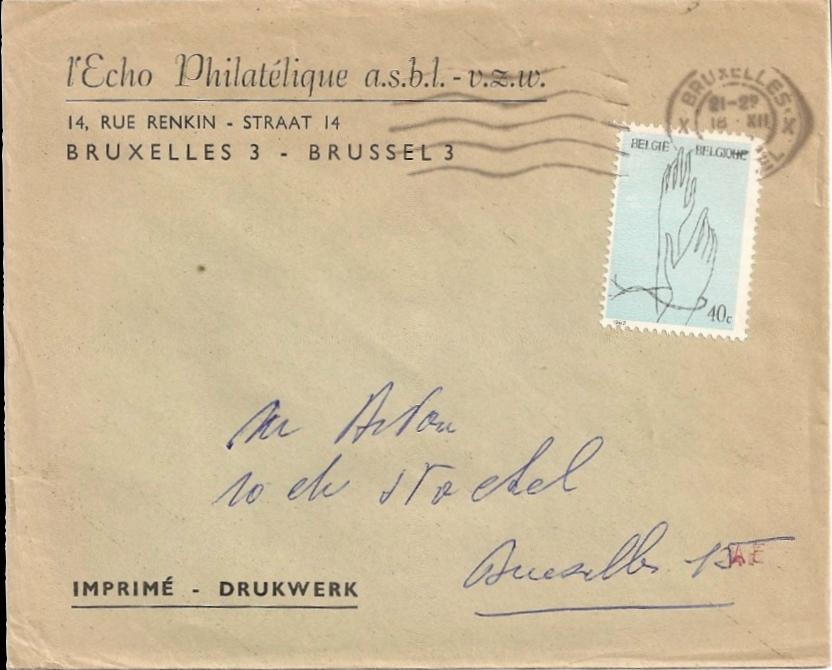 l'Echo Philatélique a.s.b.l. - v.z.w.
14, RUE RENKIN - STRAAT 14
BRUXELLES 3 - BRUSSEL 3
BRUXELLES
X X
21-22
18 XII
BELGIË BELGIQUE
40c
Mr
10 de
Bruxelles 15
AE
IMPRIMÉ - DRUKWERK